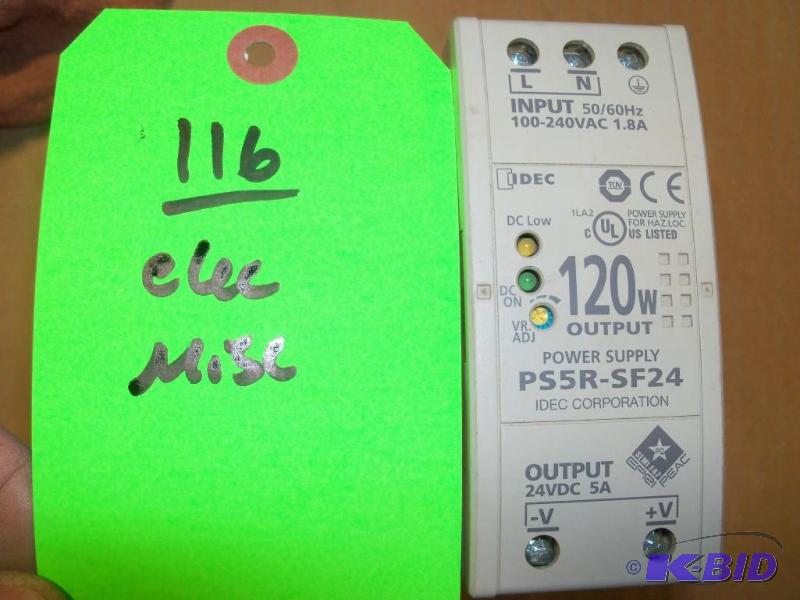 116
elec
Misc
L N
INPUT 50/60Hz
100-240VAC 1.8A
IDEC
TÜV
CE
1LA2
C UL US LISTED
POWER SUPPLY
FOR HAZ.LOC.
DC Low
DC
ON
VR.
ADJ
120W
OUTPUT
POWER SUPPLY
PS5R-SF24
IDEC CORPORATION
SEMI F47
EPRI PEAC
OUTPUT
24VDC 5A
-V +V
© K-BID